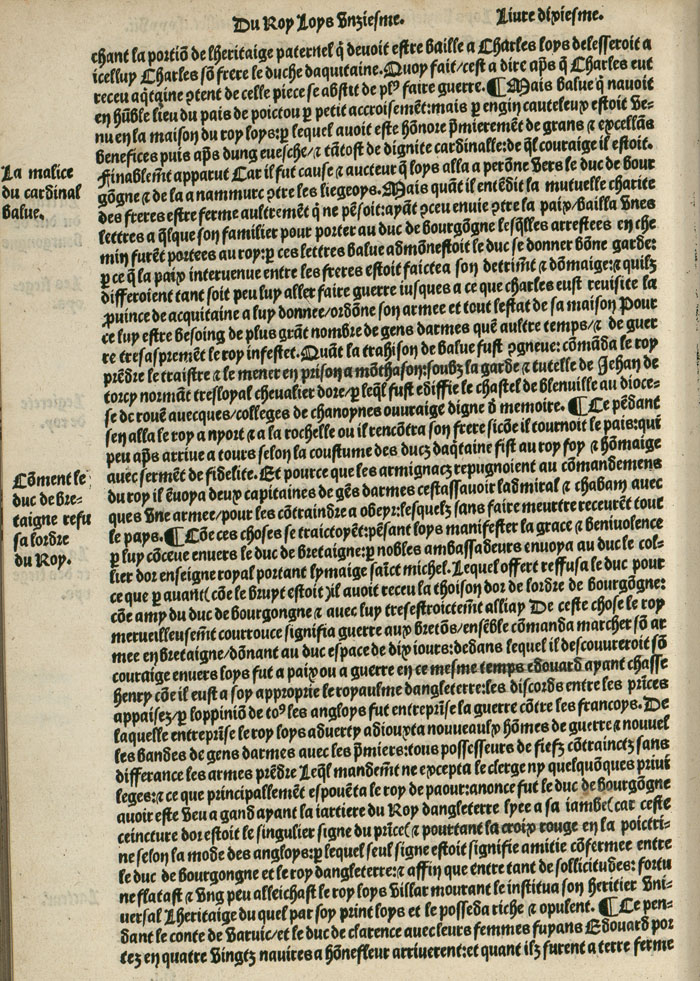 Du Roy Loys Vnziesme. Liure dixiesme.
chant la portiõ de lheritaige paternel q̃ deuoit estre baille a Charles loys delesseroit a
icelluy Charles sõ frere le duche daquitaine. Quoy fait/cest a dire ap̃s q̃ Charles eut
receu aq̃taine ꝯtent de celle piece se abstit de plꝰ faire guerre. ¶ Mais balue q̃ nauoit
en hũble lieu du pais de poictou p petit accroisemẽt: mais p engin cauteleux estoit ve-
nu en la maison du roy loys: p lequel auoit este hõnore p̃mieremẽt de grans ⁊ excellãs
benefices puis ap̃s dung euesche/⁊ tãtost de dignite cardinalle: de q̃l couraige il estoit.
Finablemẽt apparut Car il fut cause ⁊ aucteur q̃ loys alla a perõne vers le duc de bour
gõgne ⁊ de la a nammurc ꝯtre les liegeoys. Mais quãt il entẽdit la mutuelle charite
des freres estre ferme aultremẽt q̃ ne pẽsoit: ayãt ꝯceu enuie ꝯtre la paix/bailla vnes
lettres a q̃lque son familier pour porter au duc de bourgõgne lesq̃lles arrestees en che
min furẽt portees au roy: p ces lettres balue admõnestoit le duc se donner bõne garde:
p ce q̃ la paix interuenue entre les freres estoit faicte a son detrimẽt ⁊ dõmaige: ⁊ quilz
differoient tant soit peu luy aller faire guerre iusques a ce que charles eust reuisite la
prouince de acquitaine a luy donnee/ordõne son armee et tout lestat de sa maison Pour
ce luy estre besoing de plus grãt nombre de gens darmes quẽ aultre temps/⁊ de guer
re tresaspremẽt le roy infestet. Quãt la trahison de balue fust ꝯgneue: cõmãda le roy
prẽdre le traistre ⁊ le mener en prison a mõthason: soubz la garde ⁊ tutelle de Jehan de
torcy normãt tresloyal cheualier dore/p leq̃l fust ediffie le chastel de blenuille au dioce-
se de rouẽ auecques/colleges de chanoynes ouuraige digne d̃ memoire. ¶ Ce pẽdant
sen alla le roy a nyort ⁊ a la rochelle ou il rencõtra son frere sicõe il tournoit le pais: qui
peu ap̃s arriue a tours selon la coustume des ducz daq̃taine fist au roy foy ⁊ hõmaige
auec sermẽt de fidelite. Et pource que les armignacz repugnoient au cõmandemens
du roy il ẽuoya deux capitaines de gẽs darmes cestassauoir ladmiral ⁊ chabam auec
ques vne armee/pour les cõtraindre a obeyr: lesquelz sans faire meurtre receurẽt tout
le pays. ¶ Cõe ces choses se traictoyẽt: pẽsant loys manifester la grace ⁊ beniuolence
p luy cõceue enuers le duc de bretaigne: p nobles ambassadeurs enuoya au duc le col-
lier dor enseigne royal portant lymaige saict michel. Lequel offert reffusa le duc pour
ce que p auant (cõe le bruyt estoit) il auoit receu la thoison dor de lordre de bourgõgne:
cõe amy du duc de bourgongne ⁊ auec luy tresestroictemẽt alliay De ceste chose le roy
merueilleusemẽt courrouce signifia guerre aux bretõs/ensẽble cõmanda marcher sõ ar
mee en bretaigne/dõnant au duc espace de dix iours: dedans lequel il descouureroit sõ
couraige enuers loys fut a paix ou a guerre en ce mesme temps edouard ayant chasse
henry cõe il eust a soy approprie le royaulme dangleterre: les discords entre les prĩces
appaisez/p loppiniõ de toꝰ les angloys fut entreprĩse la guerre cõtre les francoys. De
laquelle entreprĩse le roy loys aduerty adiouxta nouueaulx hõmes de guerre ⁊ nouuel
les bandes de gens darmes auec les p̃miers: tous possesseurs de fiefz cõtrainctz sans
differance les armes prẽdre Leq̃l mandemẽt ne excepta le clerge ny quelquõques priui
leges: ⁊ ce que principallemẽt espouẽta le roy de paour: anonce fut le duc de bourgõgne
auoir este veu a gand ayant la iartiere du Roy dangleterre lyee a sa iambe (car ceste
ceincture dor estoit le singulier signe du prĩce) ⁊ pourtant la croix rouge en la poictri-
ne selon la mode des angloys: p lequel seul signe estoit signifie amitie cõfermee entre
le duc de bourgongne et le roy dangleterre: ⁊ affin que entre tant de sollicitudes: fortu
ne flatast ⁊ vng peu alleichast le roy loys Villar mourant le institua son heritier vni-
uersal Lheritaige du quel par soy print loys et le posseda riche ⁊ opulent. ¶ Ce pen-
dant le conte de Varuic/et le duc de clarence auec leurs femmes fuyans Edouard por
tez en quatre vingtz nauires a hõnefleur arriuerent: et quant ilz furent a terre ferme
La malice
du cardinal
balue.
Cõment le
duc de bre-
taigne refu
sa lordre
du Roy.